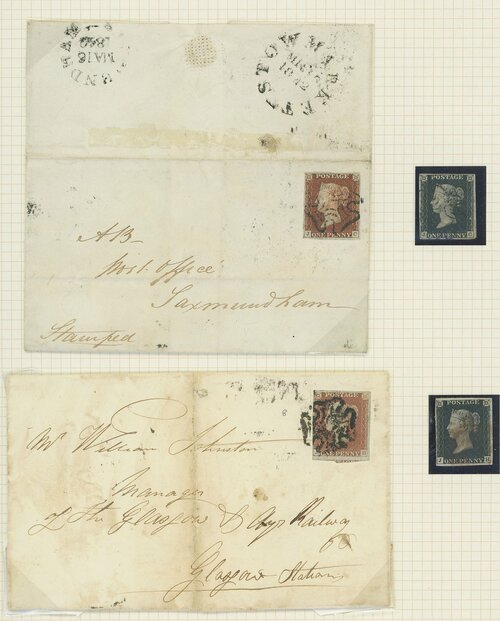 STOWMARKET
1842
MA16
POSTAGE
ONE PENNY
POSTAGE
ONE PENNY
AB
Post Office
Saxmundham
Stamped
POSTAGE
ONE PENNY
POSTAGE
ONE PENNY
Mr William Johnston
Manager
of the Glasgow & Ayr Railway
Glasgow Station